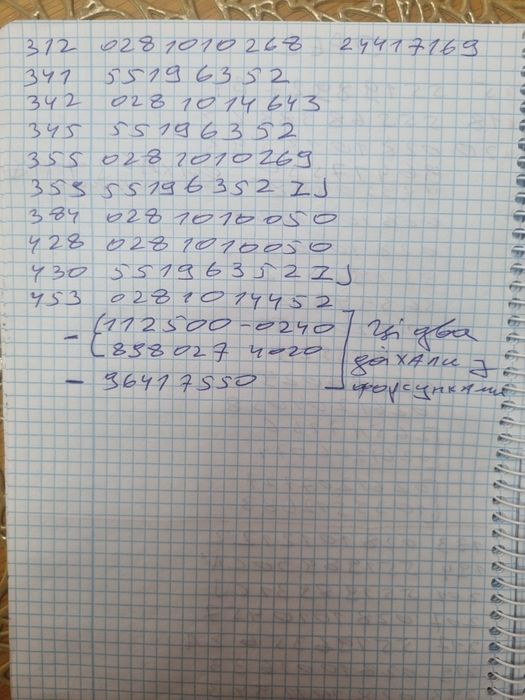 312 0281010268 24417169
341 55196352
342 0281014643
345 55196352
355 0281010269
359 55196352 ZJ
384 0281010050
428 0281010050
430 55196352 ZJ
453 0281014452
- (112500-0240 ] Ці два
(898027 4020 доїхали з
- 96417550 форсунками